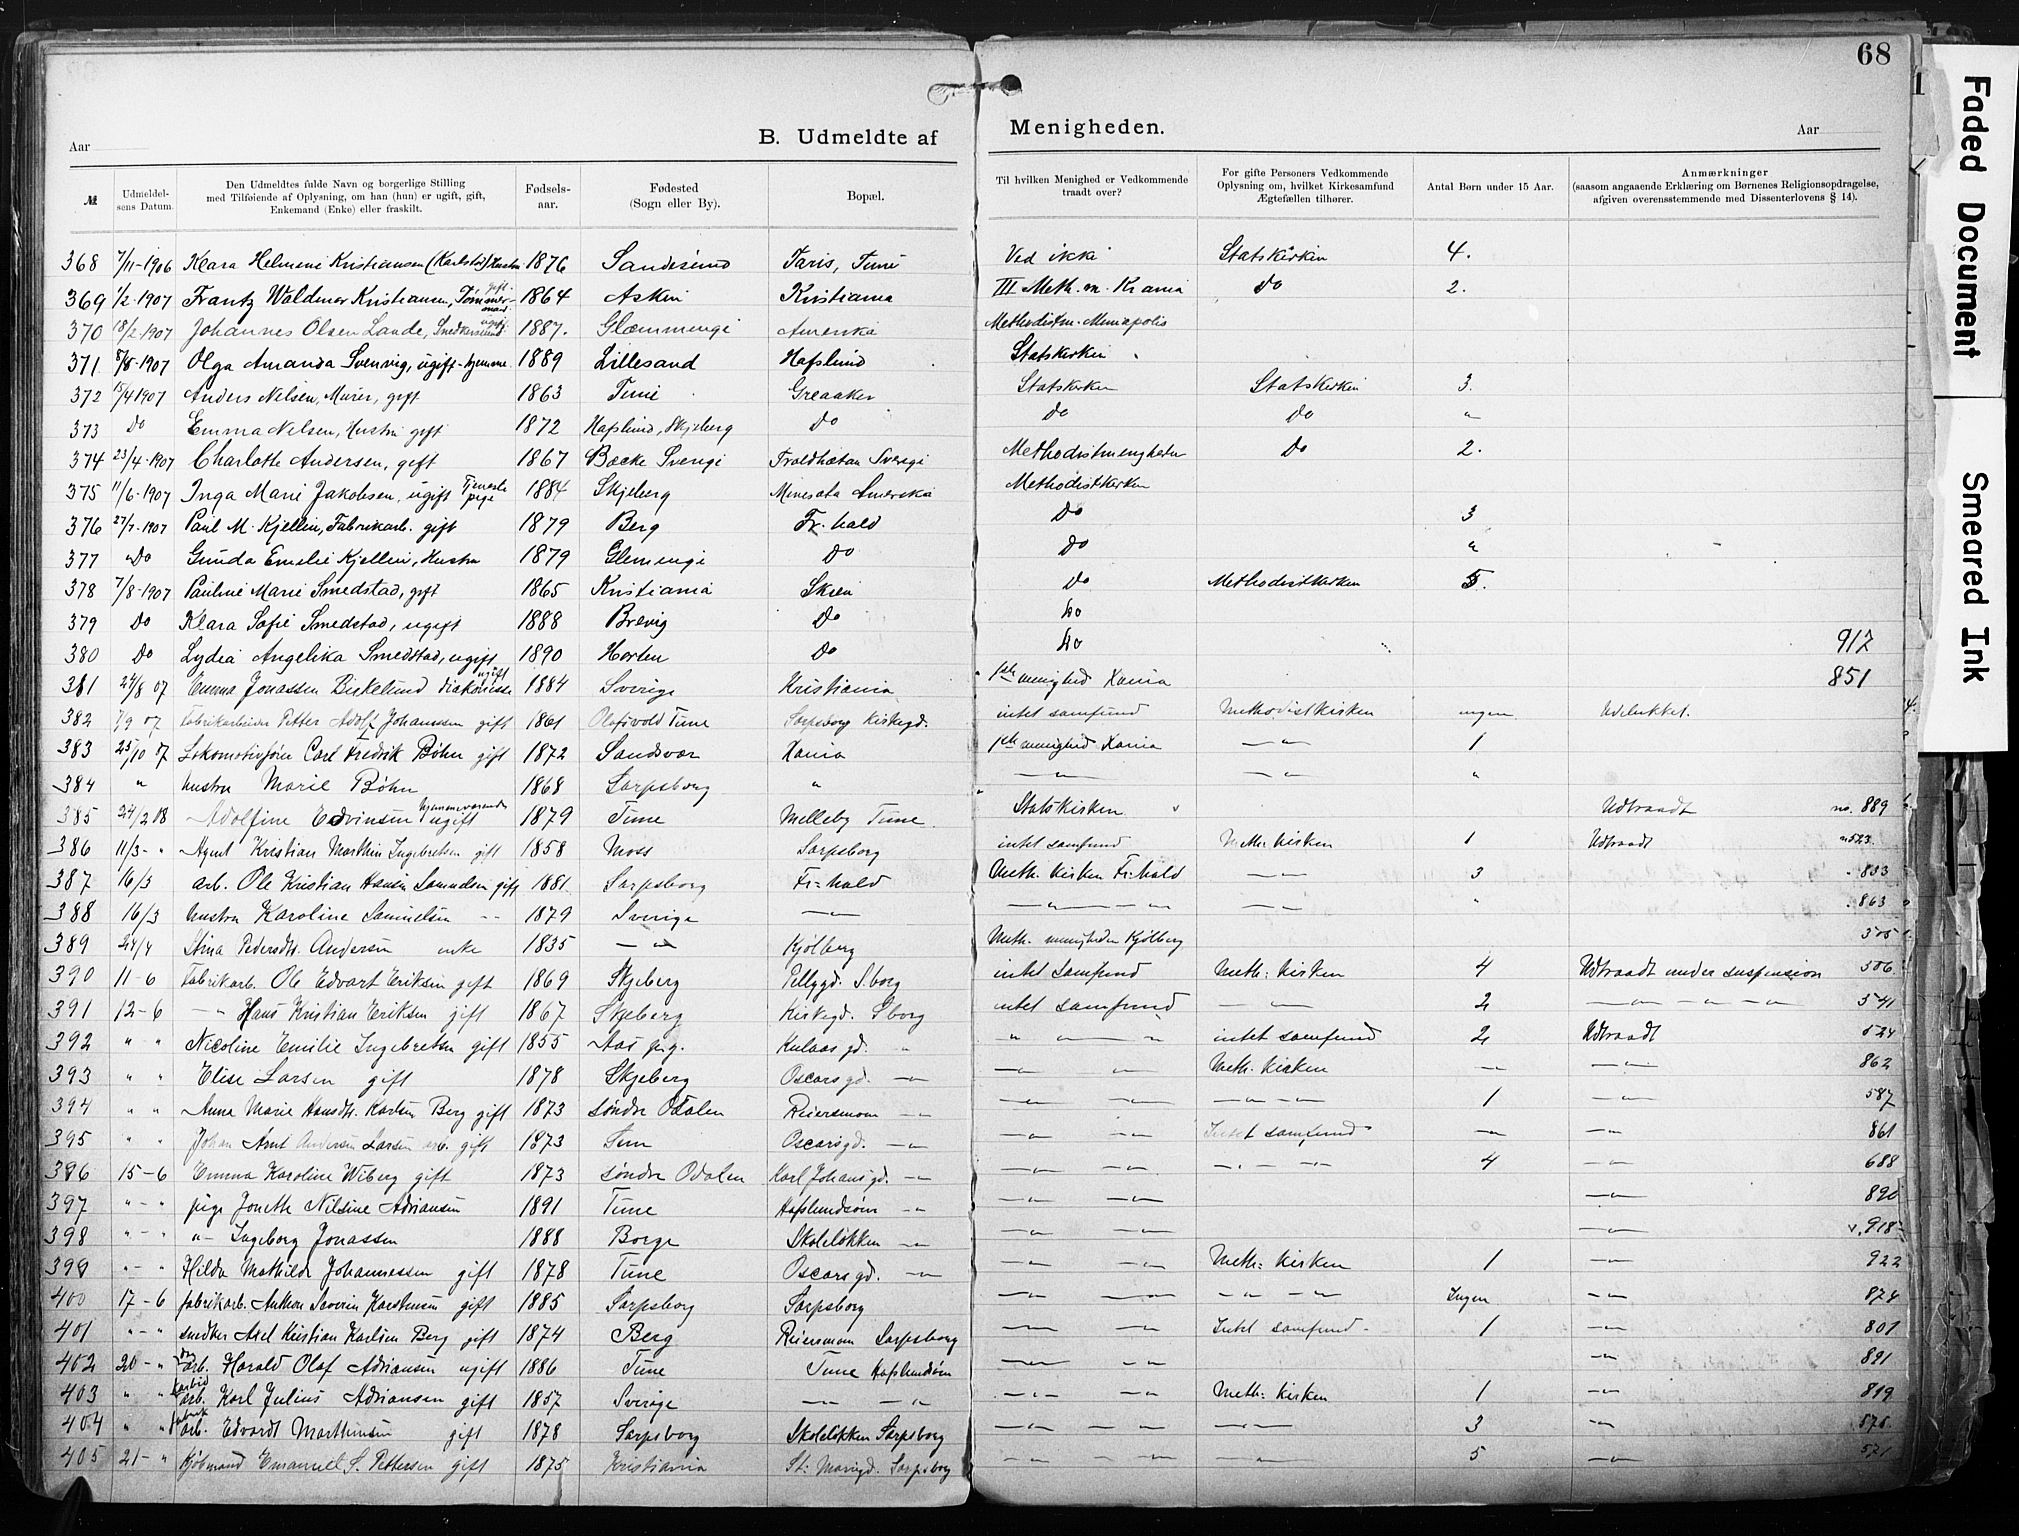 68
Faded Document
Smeared Ink
Aar
B. Udmeldte af Menigheden.
Aar
№ | Udmeldelsens Datum. | Den Udmeldtes fulde Navn og borgerlige Stilling med Tilføiende af Oplysning, om han (hun) er ugift, gift, Enkemand (Enke) eller fraskilt. | Fødselsaar. | Fødested (Sogn eller By). | Bopæl. | Til hvilken Menighed er Vedkommende traadt over? | For gifte Personers Vedkommende Oplysning om, hvilket Kirkesamfund Ægtefællen tilhører. | Antal Børn under 15 Aar. | Anmærkninger (saasom angaaende Erklæring om Børnenes Religionsopdragelse, afgiven overensstemmende med Dissenterlovens § 14).
368 7/11-1906 Klara Helmine Kristiansen (Karlstad) Hustru 1876 Sandesund Taris, Tune Ved ikke Statskirken 4.
369 1/2-1907 Frantz Waldemar Kristiansen, Tømmermand gift 1864 Askim Kristiania III Meth. m. Krania do 2.
370 18/2-1907 Johannes Olsen Lande, Snedkersvend ugift 1887. Glemminge Amerika Methodistm. Minapolis
371 8/8-1907 Olga Amanda Svenvig, ugift-hjemme 1889 Lillesand Hafslund Statskirken
372 15/4 1907 Anders Nilsen, Murer, gift 1863 Tune Greaaker Statskirken Statskirken 3.
373 Do Emma Nelsen, Hustru gift 1872 Hafslund, Skjeberg do do do "
374 23/4-1907 Charlotte Andersen, gift 1867 Backe Sverige Troldhætan Sverige Methodistmenigheden Do 2.
375 11/6-1907 Inga Marie Jakobsen, ugift Tjenestepige 1884 Skjeberg Minesota Amerika Methodistkirken
376 27/7-1907 Paul M. Kjellin, Fabrikarb. gift 1879 Berg Fr. hald Do 3
377 "Do Gunda Emilie Kjellin, Hustru 1879 Glemminge Do Do "
378 7/8-1907 Pauline Marie Smedstad, gift 1865 Kristiania Skien Do Methodistkirken 5.
379 Do Klara Sofie Smedstad, ugift 1888 Brevig Do Do
380 Do Lydia Angelika Smedstad, ugift 1890 Horten Do Do 917
381 24/8 07 Emma Jonassen Birkelund diakonisse ugift 1884 Sverige Kristiania 1ste menighed Xania 851
382 7/9 07 Fabrikarbeider Petter Adolf Johanssen gift 1861 Tune Sarpsborg Kirkegd. intet samfund Methodistkirken ingen Udelukket.
383 25/10 07 Lokomotivfører Carl Fredrik Bøhn gift 1872 Sandsvær Xania 1ste menighed Xania —"— 1
384 " hustru Marie Bøhn 1868 Sarpsborg " —"— —"— "
385 24/2 08 Adolfine Edvinsen hjemmeværende ugift 1879 Tune Melleby Tune Statskirken Udtraadt no. 889
386 11/3- " Agent Kristian Marthin Ingebretsen gift 1858 Moss Sarpsborg intet samfund Meth. kirken 1 Udtraadt " 523
387 16/3 arb. Ole Kristian Hansen Samuelsen gift 1881 Sarpsborg Fr=hald Meth. kirken Fr=hald —"— 3 " 833
388 16/3 hustru Karoline Samuelsen -- 1879 Sverige —"— —"— —"— —"— " 863
389 24/4 Stina Pedersdt. Andersen enke 1835 —"— Kjölberg Meth. menigheden Kjölberg 305
390 11-6 Fabrikarb. Ole Edvart Eriksen gift 1869 Skjeberg Pellygd. S.borg intet samfund Meth: kirken 4 Udtraadt under suspension 506
391 12-6 —"— Hans Kristian Eriksen gift 1867 Skjeberg Kirkegd. Sborg intet samfund —"— 2 —"— —"— 541
392 " " Nicoline Emilie Ingebretsen gift 1855 Aas pg. Kulaas gd. " " —"— intet samfund 2 Udtraadt 524
393 " " Elise Larsen gift 1878 Skjeberg Oscars gd. —"— —"— " Meth. kirken —"— —"— 862
394 " " Anna Marie Hansdt. Karlsen Berg gift 1873 søndre Odalen Reiersmoen —"— —"— —"— —"—"— 1 —"— 587
395 " " Johan Arnt Andersen Larsen arb. gift 1873 Tune Oscarsgd. —"— —"— —"— Intet samfund —"— —"— 861
396 15-6 Emma Karoline Wiberg gift 1873 søndre Odalen Karl Johansgd. —"— —"— —"— —"— —"— 4 —"— 688
397 "-" pige Jonette Nilsine Adriansen 1891 Tune Hafslundsøen —"— —"— —"— —"— 890
398 "-" "- Ingeborg Jonassen 1888 Borge Skoleløkken —"— —"— —"— —"— 918
399 "-" Hilda Mathilde Johannessen gift 1878 Tune Oscars gd. —"— —"— —"— Meth: kirken 1 —"— 922
400 17-6 fabrikarb. Anthon Severin Karstensen gift 1885 Sarpsborg Sarpsborg —"— —"— —"— —"— Ingen —"— 874
401 "-" snedker Axel Kristian Karlsen Berg gift 1874 Berg Reiersmoen Sarpsborg —"— —"— Intet samfund 1 —"— 801
402 20-" arb. Harald Olaf Adriansen ugift 1886 Tune Tune Hafslundsøen —"— —"— —"— 891
403 " " Karbid arb. Karl Julius Adriansen gift 1857 Sverige —"— —"— —"— —"— Meth: kirken 1 —"— 819
404 " " fabrik arb. Edvardt Marthinsen gift 1878 Sarpsborg Skoleløkken Sarpsborg —"— —"— —"— 3 —"— 575
405 21-" Kjøbmand Emanuel S. Pettersen gift 1875 Kristiania St: Mariegd. Sarpsborg —"— —"— —"— 5 —"— 571